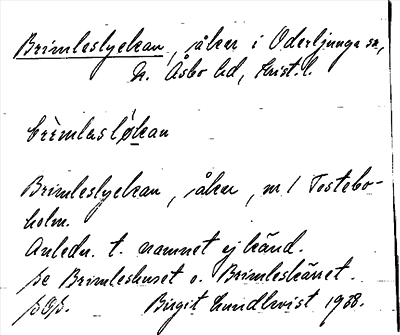 Brimleslyckan, åker i Oderljunga sn,
N. Åsbo hd, Krist. l.
brìmlasløkan
Brimleslyckan, åker, nr 1 Tostebo-
holm.
Anledn. t. namnet ej känd.
Se Brimleshuset o. Brimleskärret.
Birgit Lundkvist 1938.